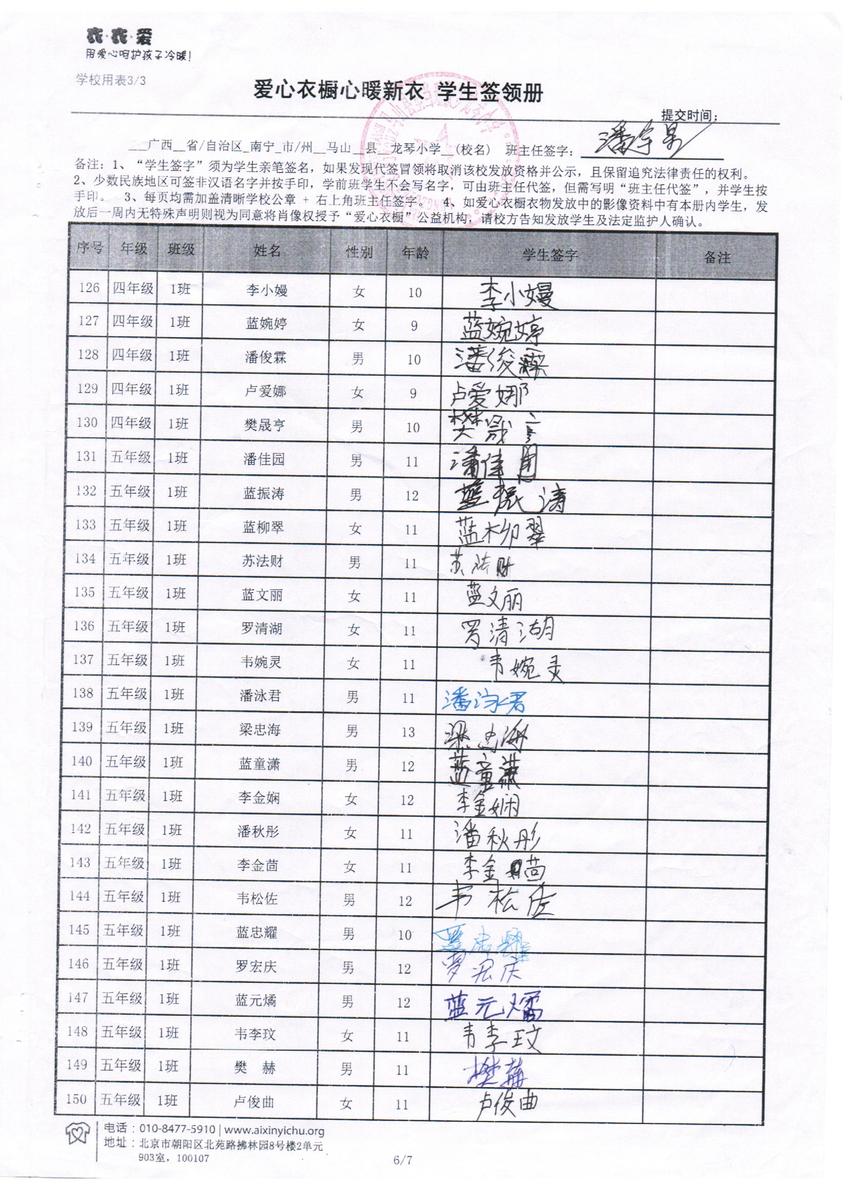 衣·衣·爱
用爱心呵护孩子冷暖!
学校用表3/3
爱心衣橱心暖新衣 学生签领册
提交时间:
__广西__省/自治区_南宁_市/州__马山__县__龙琴小学__(校名) 班主任签字:
备注: 1、“学生签字”须为学生亲笔签名, 如果发现代签冒领将取消该校发放资格并公示, 且保留追究法律责任的权利。
2、少数民族地区可签非汉语名字并按手印, 学前班学生不会写名字, 可由班主任代签, 但需写明“班主任代签”, 并学生按
手印。 3、每页均需加盖清晰学校公章 + 右上角班主任签字。 4、如爱心衣橱衣物发放中的影像资料中有本册内学生, 发
放后一周内无特殊声明则视为同意将肖像权授予“爱心衣橱”公益机构, 请校方告知发放学生及法定监护人确认。
序号 年级 班级 姓名 性别 年龄 学生签字 备注
126 四年级 1班 李小嫚 女 10 李小嫚
127 四年级 1班 蓝婉婷 女 9 蓝婉婷
128 四年级 1班 潘俊霖 男 10 潘俊霖
129 四年级 1班 卢爱娜 女 9 卢爱娜
130 四年级 1班 樊晟亨 男 10 樊晟亨
131 五年级 1班 潘佳园 男 11 潘佳园
132 五年级 1班 蓝振涛 男 12 蓝振涛
133 五年级 1班 蓝柳翠 女 11 蓝柳翠
134 五年级 1班 苏法财 男 11 苏法财
135 五年级 1班 蓝文丽 女 11 蓝文丽
136 五年级 1班 罗清湖 女 11 罗清湖
137 五年级 1班 韦婉灵 女 11 韦婉灵
138 五年级 1班 潘泳君 男 11 潘泳君
139 五年级 1班 梁忠海 男 13 梁忠海
140 五年级 1班 蓝童潇 男 12 蓝童潇
141 五年级 1班 李金娴 女 12 李金娴
142 五年级 1班 潘秋彤 女 11 潘秋彤
143 五年级 1班 李金茴 女 11 李金茴
144 五年级 1班 韦松佐 男 12 韦松佐
145 五年级 1班 蓝忠耀 男 10 蓝忠耀
146 五年级 1班 罗宏庆 男 12 罗宏庆
147 五年级 1班 蓝元燏 男 12 蓝元燏
148 五年级 1班 韦李玟 女 11 韦李玟
149 五年级 1班 樊 赫 男 11 樊赫
150 五年级 1班 卢俊曲 女 11 卢俊曲
电话: 010-8477-5910 | www.aixinyichu.org
地址: 北京市朝阳区北苑路拂林园8号楼2单元
903室, 100107
6/7